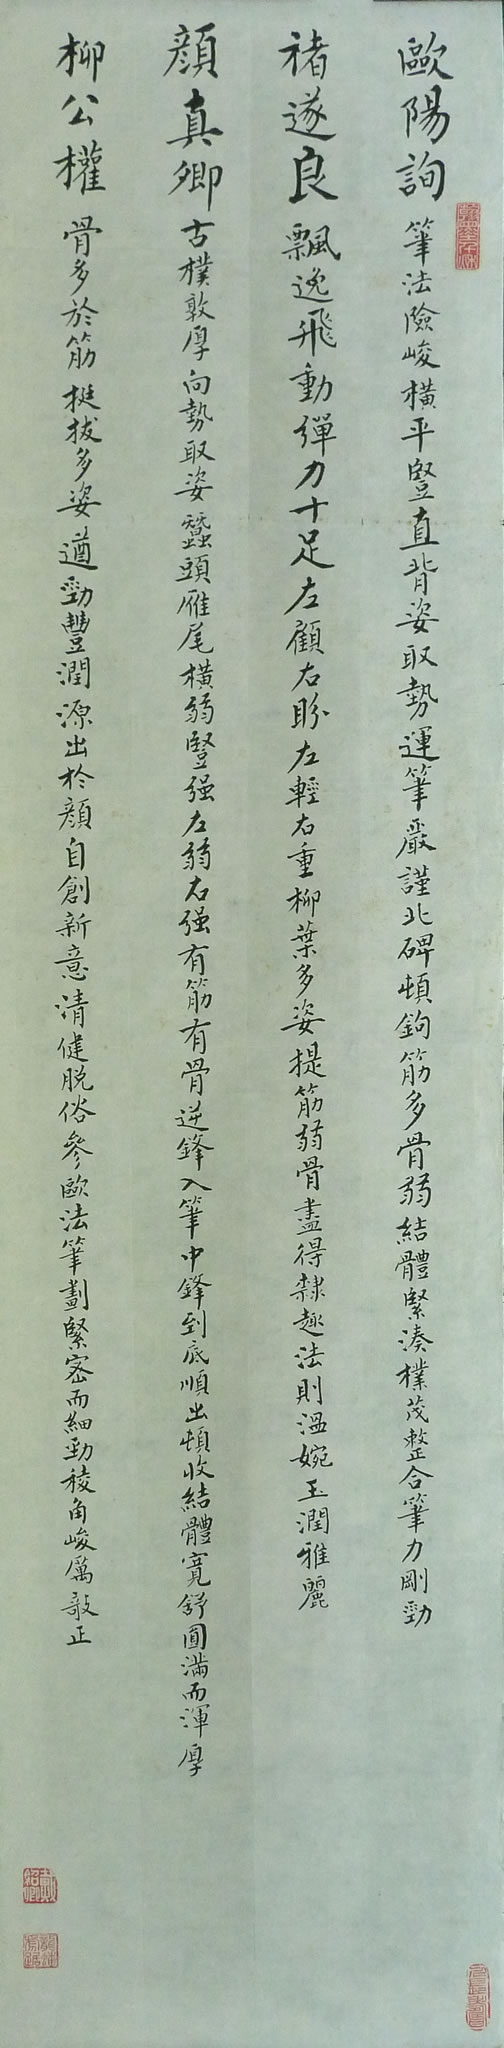 歐陽詢 筆法險峻橫平豎直背姿取勢運筆嚴謹北碑頓鉤筋多骨弱結體緊湊樸茂整合筆力剛勁
褚遂良 飄逸飛動彈力十足左顧右盼左輕右重柳葉多姿提筋弱骨盡得隸趣法則溫婉玉潤雅麗
顏真卿 古樸敦厚向勢取姿蠶頭雁尾橫弱豎强左弱右强有筋有骨逆鋒入筆中鋒到底順出頓收結體寬舒圓滿而渾厚
柳公權 骨多於筋挺拔多姿遒勁豐潤源出於顏自創新意清健脫俗參歐法筆劃緊密而細勁稜角峻厲敧正